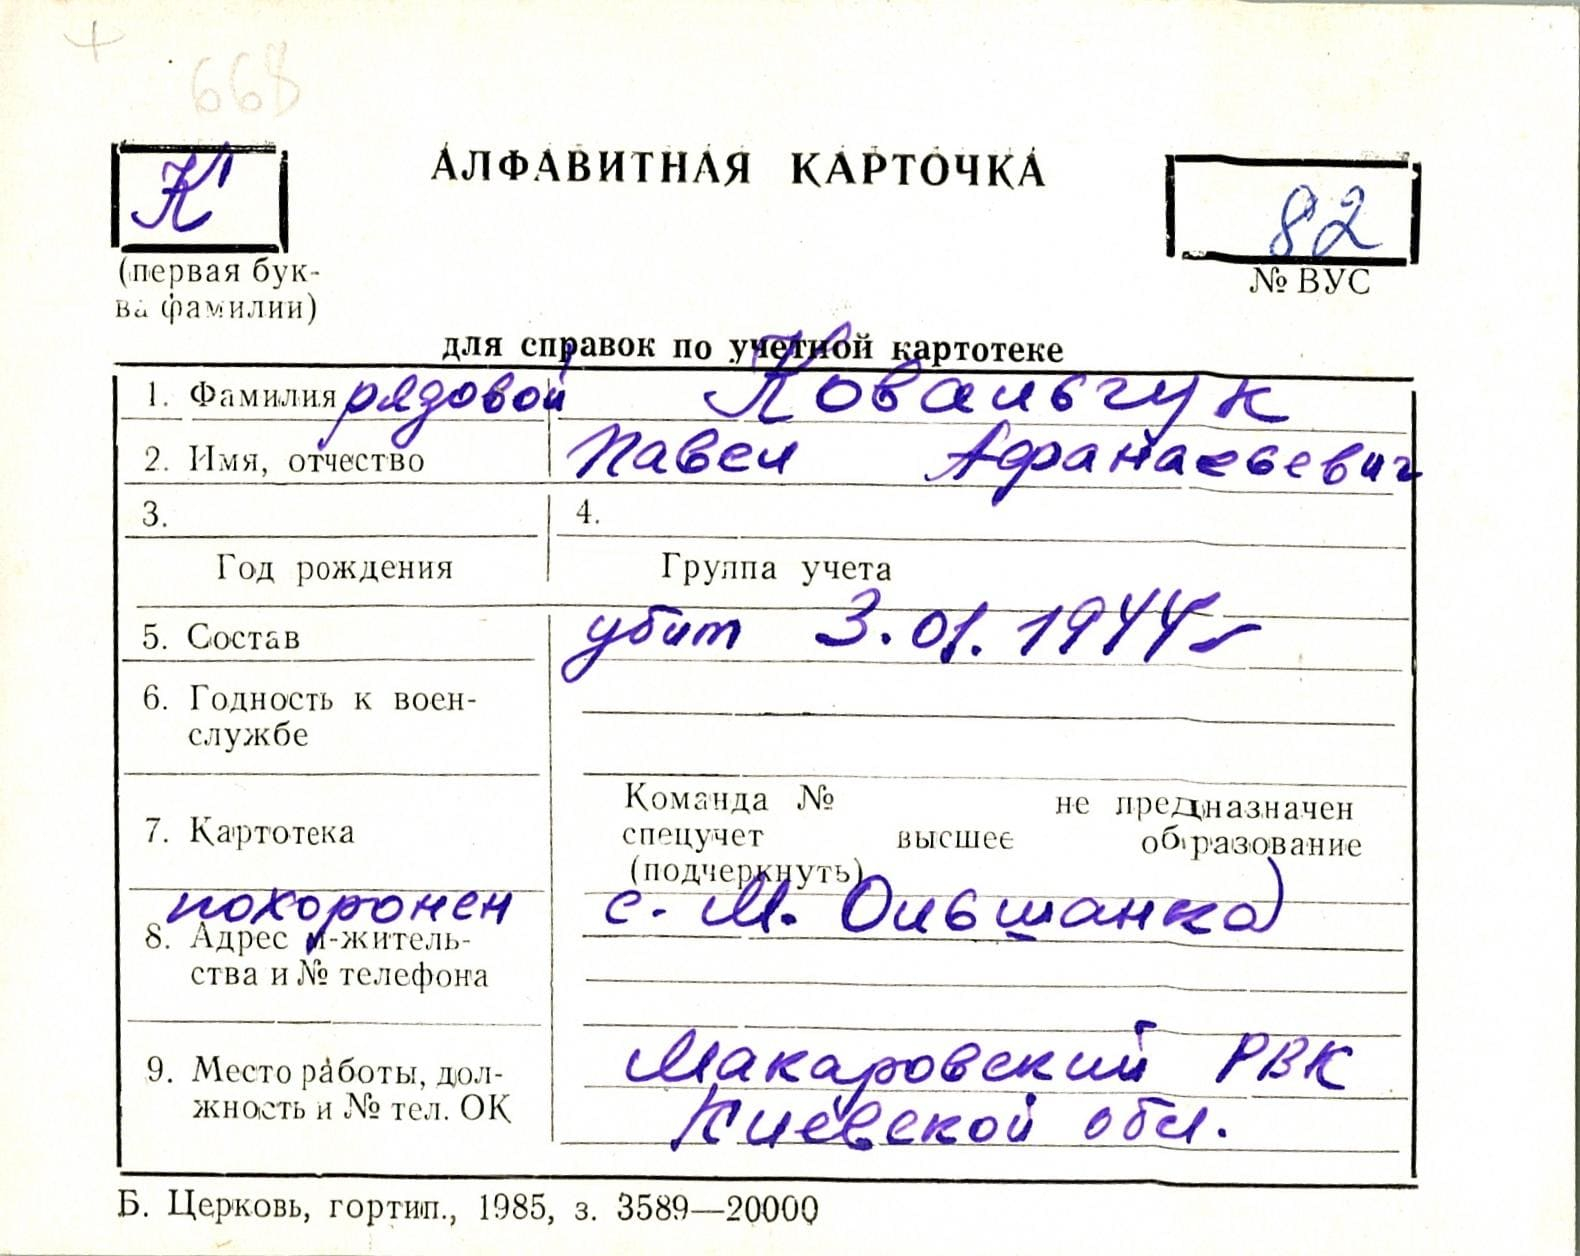 668
К
АЛФАВИТНАЯ КАРТОЧКА
82
(первая бук-
ва фамилии)
№ ВУС
для справок по учетной картотеке
1. Фамилия рядовой Ковальчук
2. Имя, отчество Павел Афанасьевич
3. 4.
Год рождения Группа учета
5. Состав убит 3.01.1944г
6. Годность к воен-
службе
Команда № не предназначен
7. Картотека спецучет высшее образование
(подчеркнуть)
похоронен с. М. Ольшанка)
8. Адрес и-житель-
ства и № телефона
9. Место работы, дол-
жность и № тел. ОК
Макаровский РВК
Киевской обл.
Б. Церковь, гортип., 1985, з. 3589—20000